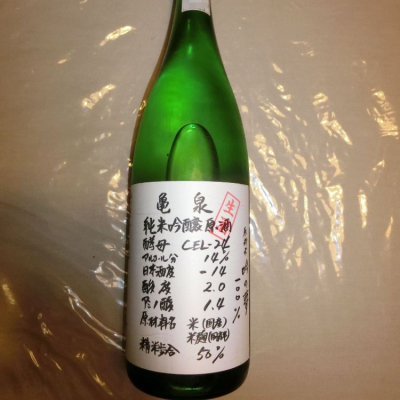 亀泉
純米吟醸原酒
酵母 CEL-24
アルコール分 14%
日本酒度 -14
酸度 2.0
アミノ酸 1.4
原材料名 米(国産)
米麹(国産米)
精米歩合 50%
生
100%